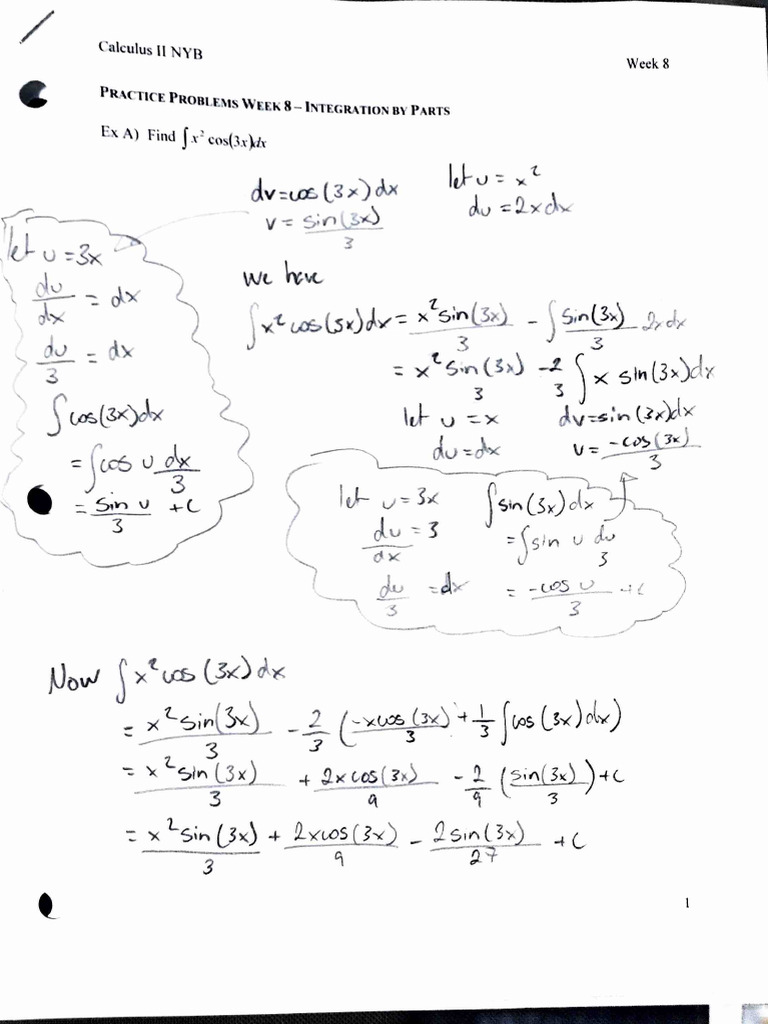 Calculus II NYB
Week 8
PRACTICE PROBLEMS WEEK 8 – INTEGRATION BY PARTS
Ex A) Find ∫x² cos(3x)dx
dv=cos(3x)dx let u = x²
v = sin(3x)/3 du = 2x dx
let u = 3x
du/dx = dx
du/3 = dx
∫cos(3x)dx
= ∫cos u dx/3
= sin u/3 + c
we have
∫x² cos(3x)dx = x² sin(3x)/3 - ∫ sin(3x)/3 2x dx
= x² sin(3x)/3 - 2/3 ∫ x sin(3x)dx
let u = x dv=sin(3x)dx
du=dx v = -cos(3x)/3
let u = 3x ∫sin(3x)dx
du/dx = 3 = ∫sin u du/3
du/3 = dx = -cos u/3 + c
Now ∫x² cos(3x)dx
= x² sin(3x)/3 - 2/3 (-xcos(3x)/3 + 1/3 ∫cos(3x)dx)
= x² sin(3x)/3 + 2xcos(3x)/9 - 2/9 (sin(3x)/3) + c
= x² sin(3x)/3 + 2xcos(3x)/9 - 2sin(3x)/27 + c
1